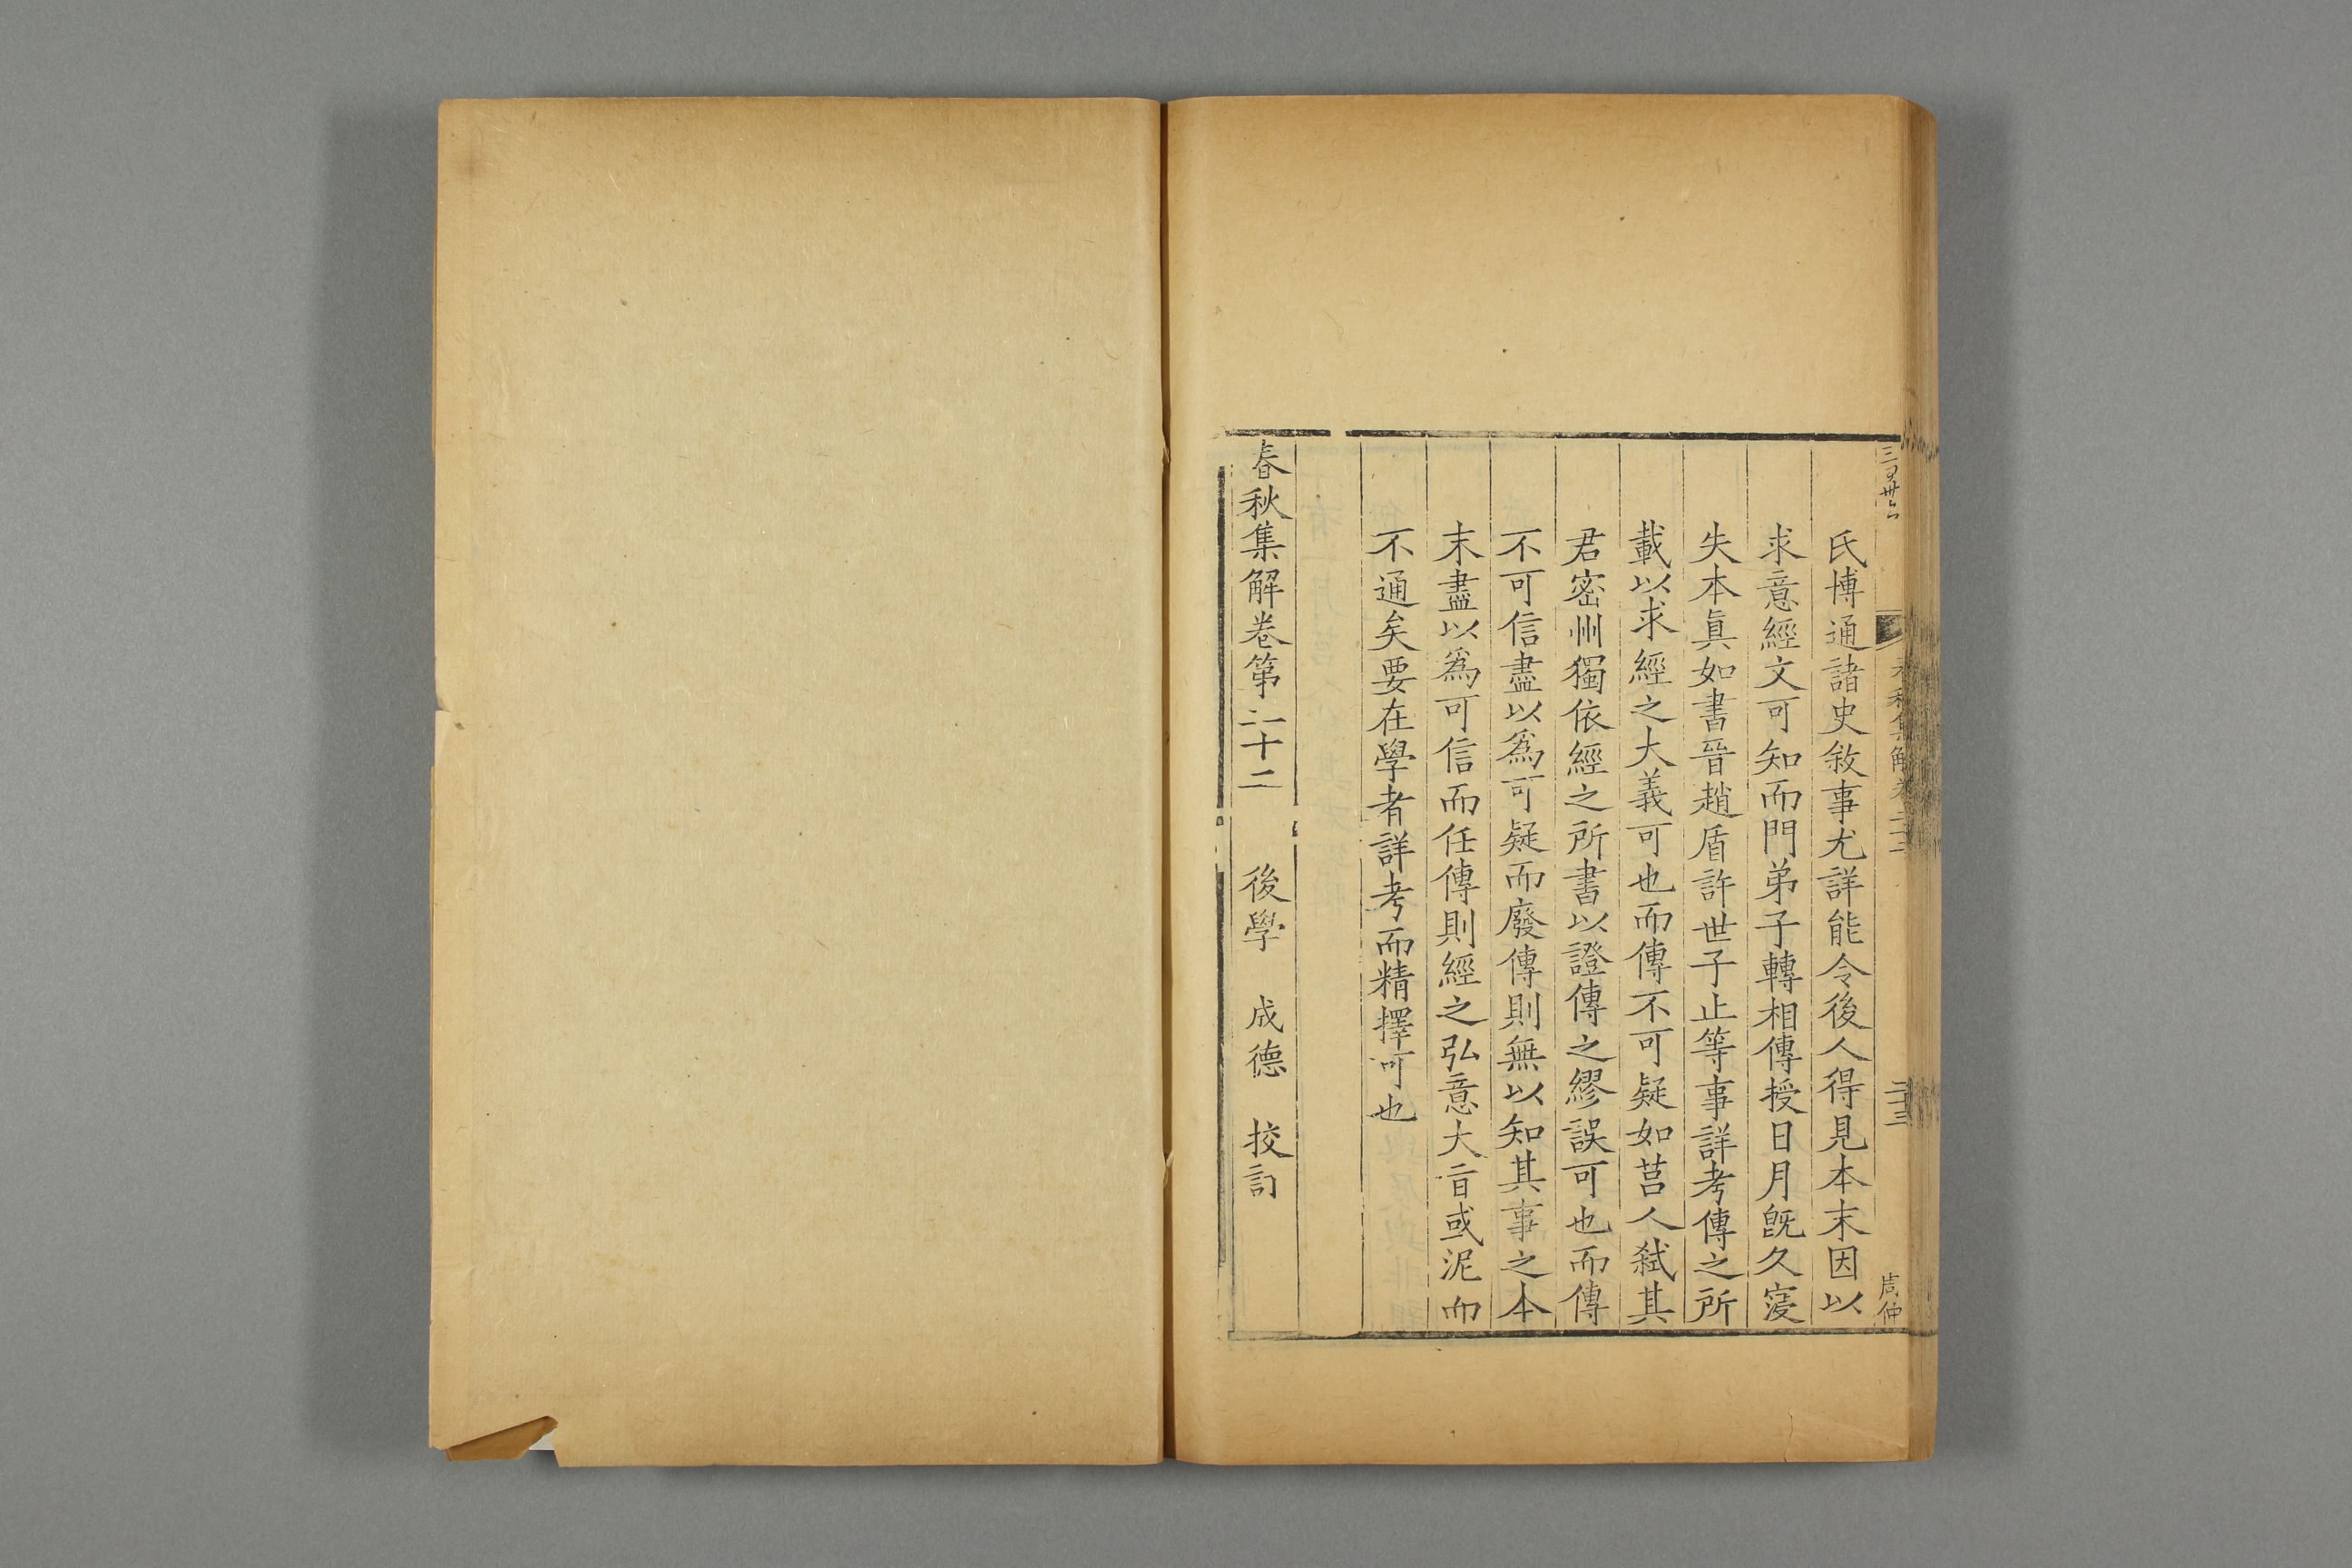 氏博通諸史敘事尤詳能令後人得見本末因以
求意經文可知而門弟子轉相傳授日月旣久寖
失本眞如書晉趙盾許世子止等事詳考傳之所
載以求經之大義可也而傳不可疑如莒人弑其
君密州獨依經之所書以證傳之繆誤可也而傳
不可信盡以爲可疑而廢傳則無以知其事之本
末盡以爲可信而任傳則經之弘意大旨或泥而
不通矣要在學者詳考而精擇可也
春秋集解卷第二十二 後學 成德 挍訂